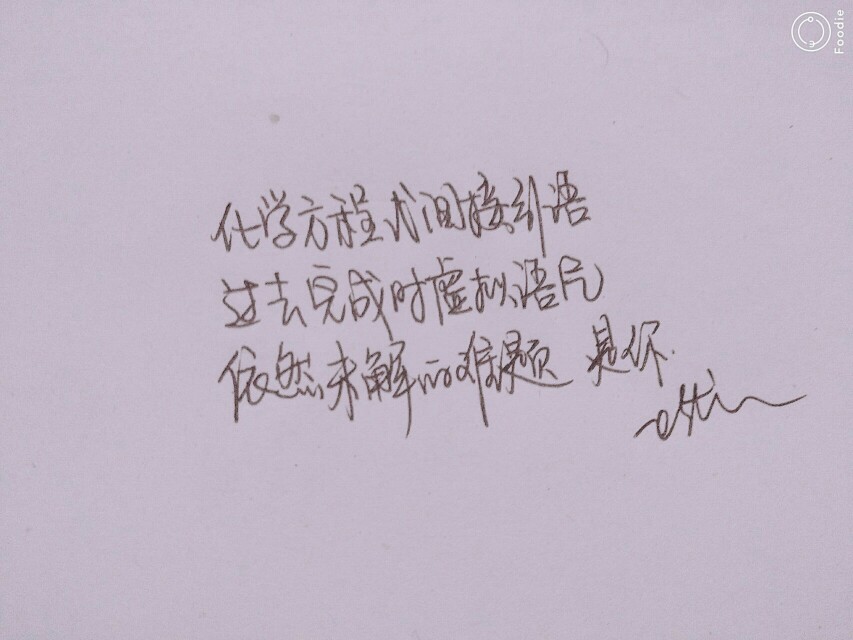 化学方程式间接引语
过去完成时虚拟语气
依然未解的难题 是你.
Foodie